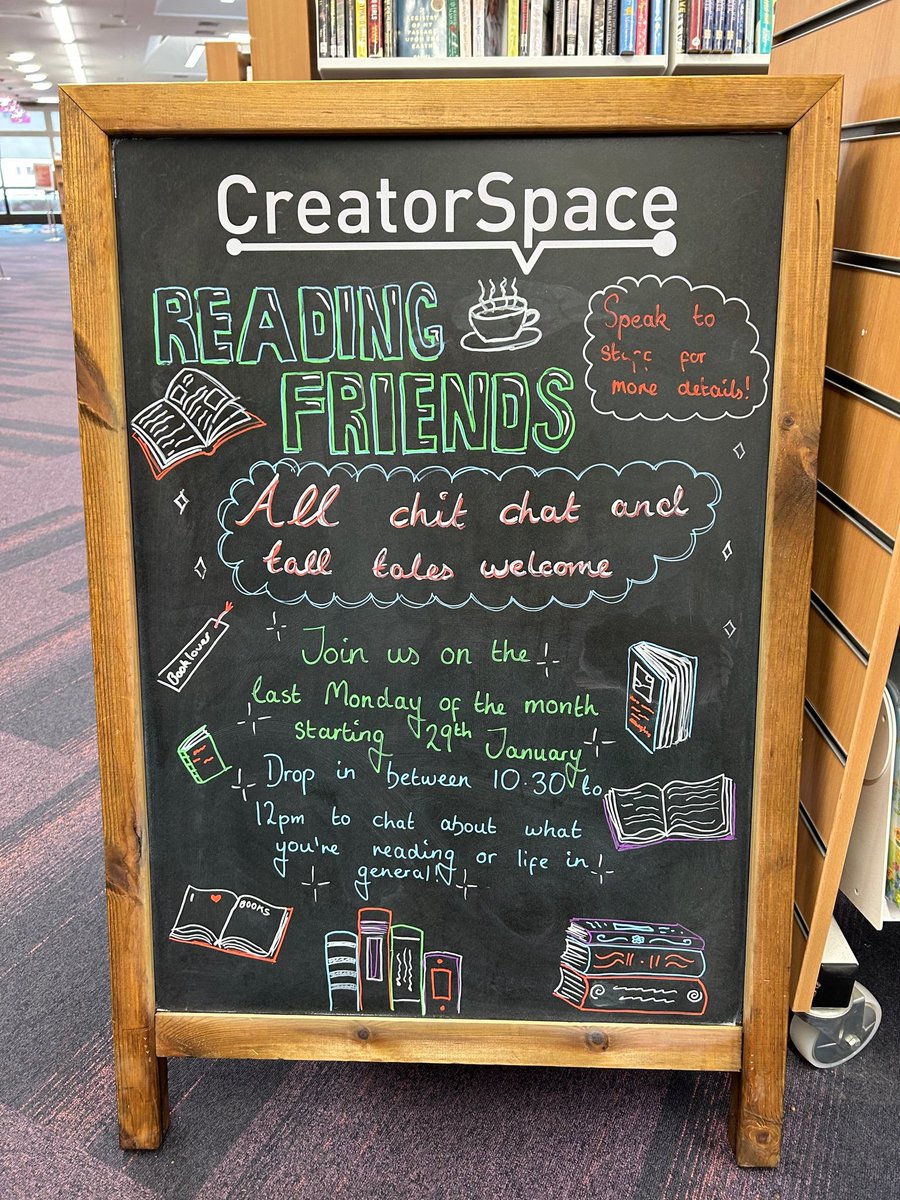 CreatorSpace
READING
FRIENDS
Speak to
staff for
more details!
All chit chat and
tall tales welcome
Booklover
Join us on the
last Monday of the month
starting 29th January
Drop in between 10.30 to
12pm to chat about what
you're reading or life in
general!
I ♥ BOOKS